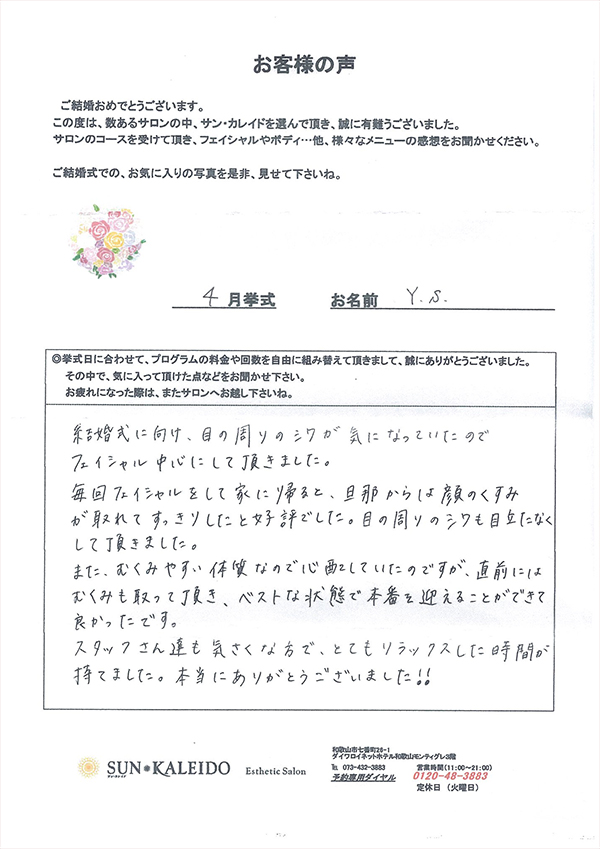 お客様の声
ご結婚おめでとうございます。
この度は、数あるサロンの中、サン・カレイドを選んで頂き、誠に有難うございました。
サロンのコースを受けて頂き、フェイシャルやボディ…他、様々なメニューの感想をお聞かせください。
ご結婚式での、お気に入りの写真を是非、見せて下さいね。
4月挙式 お名前 Y.S.
◎挙式日に合わせて、プログラムの料金や回数を自由に組み替えて頂きまして、誠にありがとうございました。
その中で、気に入って頂けた点などをお聞かせ下さい。
お疲れになった際は、またサロンへお越し下さいね。
結婚式に向け、目の周りのシワが気になっていたので
フェイシャル中心にして頂きました。
毎回フェイシャルをして家に帰ると、旦那からは顔のくすみ
が取れてすっきりしたと好評でした。目の周りのシワも目立たなく
して頂きました。
また、むくみやすい体質なので心配していたのですが、直前には
むくみも取って頂き、ベストな状態で本番を迎えることができて
良かったです。
スタッフさん達も気さくな方で、とてもリラックスした時間が
持てました。本当にありがとうございました!!
SUN●KALEIDO Esthetic Salon
サン・カレイド
和歌山市七番町26-1
ダイワロイネットホテル和歌山モンティグレ3階
TEL 073-432-3883 営業時間(11:00〜21:00)
予約専用ダイヤル 0120-48-3883
定休日 (火曜日)